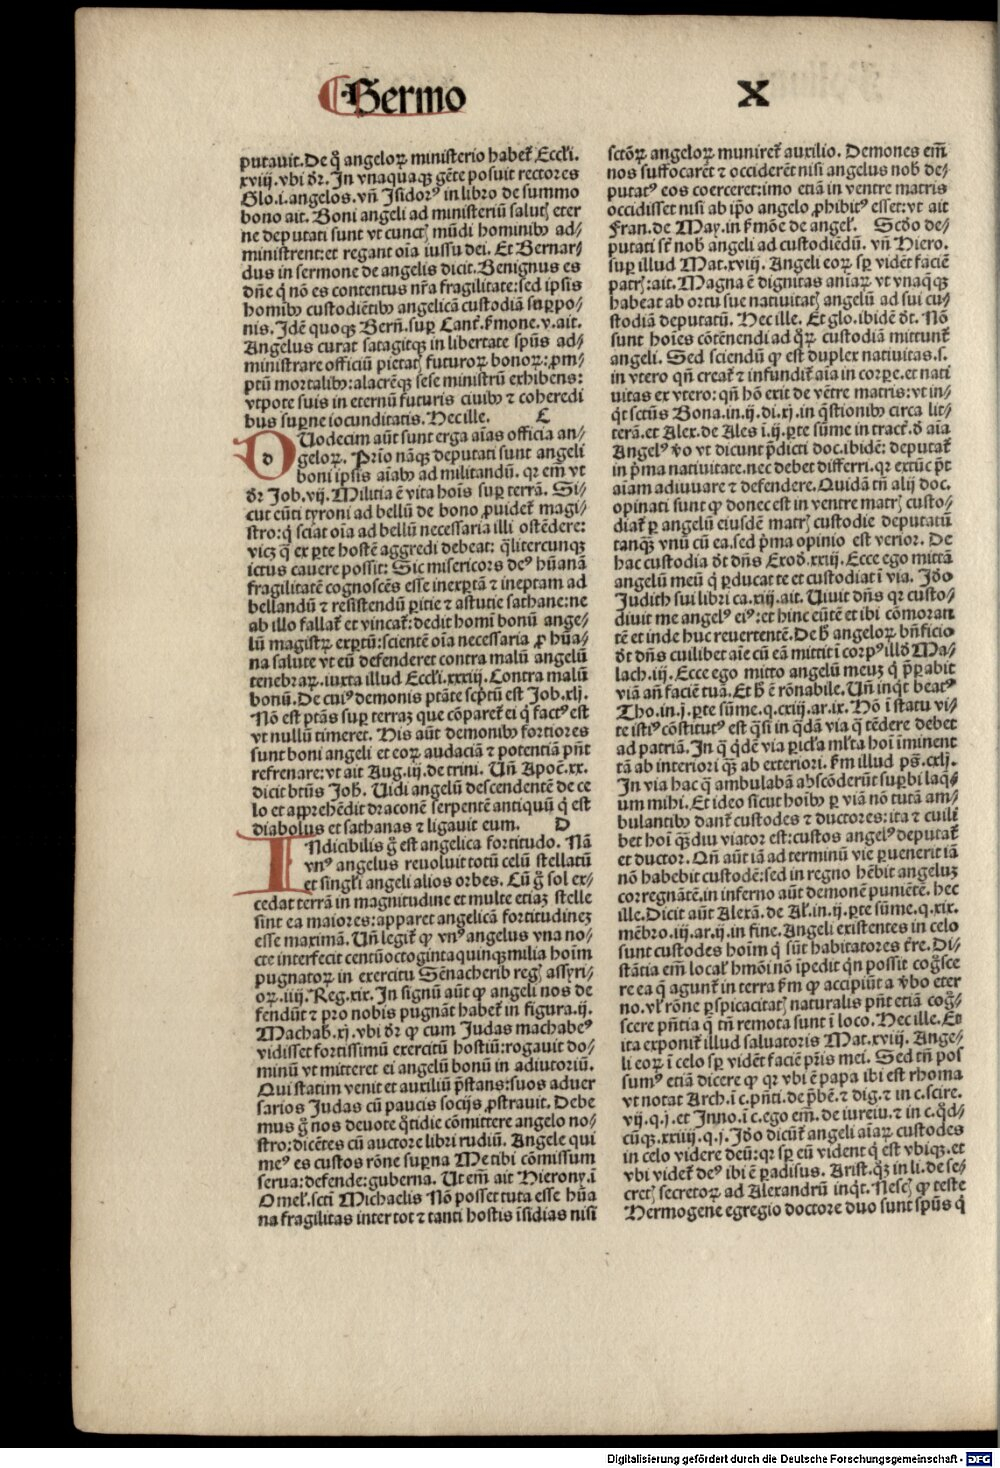 Sermo
X
putauit. De qͦ angeloꝝ ministerio habet̃ Eccłi.
xviij. vbi dr̃. In vnaquaqꝫ gẽte posuit rectores
Glo.i. angelos. vñ Isidorꝰ in libro de summo
bono ait. Boni angeli ad ministeriũ salutꝭ eter
ne deputati sunt vt cunctꝭ mũdi hominibꝰ ad⸗
ministrent: et regant oĩa iussu dei. Et Bernar⸗
dus in sermone de angelis dicit. Benignus es
dñe q̃ nõ es contentus nr̃a fragilitate: sed ipsis
homibꝰ custodiẽtibꝰ angelicã custodiã suꝑpo⸗
nis. Idẽ quoqꝫ Berñ. suꝑ Canť. ẜmone. v. ait.
Angelus curat satagitqꝫ in libertate spũs ad⸗
ministrare officiũ pietatꝭ futuroꝝ bonoꝝ: ꝓm⸗
ptũ mortalibꝰ: alacrẽqꝫ sese ministrũ exhibens:
vtpote suis in eternũ futuris ciuibꝰ ⁊ coheredi
bus suꝑne iocunditatis. Hec ille. C
DUodecim aũt sunt erga aĩas officia an⸗
geloꝝ. Prĩo nãqꝫ deputati sunt angeli
boni ipsis aĩabꝰ ad militandũ. qr em̃ vt
dr̃ Job. vij. Militia ẽ vita hoĩs suꝑ terrã. Si⸗
cut eũti tyroni ad bellũ de bono ꝓuidet̃ magi⸗
stro: q̃ sciat oĩa ad bellũ necessaria illi ostẽdere:
vicꝫ q̃ ex ꝑte hostẽ aggredi debeat: q̃litercunqꝫ
ictus cauere possit: Sic misericors deꝰ hũanã
fragilitatẽ cognoscẽs esse inexꝑtã ⁊ ineptam ad
bellandũ ⁊ resistendũ ꝑitie ⁊ astutie sathane: ne
ab illo fallat̃ et vincat̃: dedit homĩ bonũ ange⸗
lũ magistꝝ exꝑtũ: scientẽ oĩa necessaria ꝓ hũa⸗
na salute vt eũ defenderet contra malũ angelũ
tenebraꝝ. iuxta illud Eccłi. xxxiij. Contra malũ
bonũ. De cuiꝰ demonis ptãte scptũ est Job. xlj.
Nõ est ptãs suꝑ terraꝫ que cõparet̃ ei q̃ factꝰ est
vt nullũ timeret. His aũt demonibꝰ fortiores
sunt boni angeli et eoꝝ audaciã ⁊ potentiã pñt
refrenare: vt ait Aug. iij. de trini. Uñ Apoč. xx.
dicit btũs Joħ. Uidi angelũ descendentẽ de ce
lo et apprehẽdit draconẽ serpentẽ antiquũ q̃ est
diabolus et sathanas ⁊ ligauit eum. D
INdicibilis g̃ est angelica fortitudo. Nã
vnꝰ angelus reuoluit totũ celũ stellatũ
et singłi angeli alios orbes. Cũ g̃ sol ex⸗
cedat terrã in magnitudine et multe etiaꝫ stelle
sint ea maiores: apparet angelicã fortitudineꝫ
esse maximã. Uñ legit̃ ꝙ vnꝰ angelus vna no⸗
cte interfecit centũoctogintaquinqꝫmilia hoĩm
pugnatoꝝ in exercitu Sẽnacherib regꝭ assyri⸗
oꝝ. iiij. Reg. xix. In signũ aũt ꝙ angeli nos de
fendũt ⁊ pro nobis pugnãt habet̃ in figura. ij.
Machab. xj. vbi dr̃ ꝙ cum Judas machabeꝰ
vidisset fortissimũ exercitũ hostiũ: rogauit do⸗
minũ vt mitteret ei angelũ bonũ in adiutoriũ.
Qui statim venit et auxiliũ p̃stans: suos aduer
sarios Judas cũ paucis socijs ꝓstrauit. Debe
mus g̃ nos deuote q̃tidie cõmittere angelo no⸗
stro: dicẽtes cũ auctore libri rudiũ. Angele qui
meꝰ es custos rõne suꝑna Me tibi cõmissum
serua: defende: guberna. Ut em̃ ait Hierony. ĩ
Omeł. sctĩ Michaelis Nõ posset tuta esse hũa
na fragilitas inter tot ⁊ tanti hostis ĩsidias nisi
sctõꝝ angeloꝝ muniret̃ auxilio. Demones em̃
nos suffocarẽt ⁊ occiderẽt nisi angelus noƀ de⸗
putatꝰ eos coerceret: imo etiã in ventre matris
occidisset nisi ab ip̃o angelo ꝓhibitꝰ esset: vt ait
Fran. de May. in ẜmõe de angeł. Scďo de⸗
putati sr̃ noƀ angeli ad custodiẽdũ. vñ Hiero.
suꝑ illud Mat. xviij. Angeli eoꝝ sꝑ vidẽt faciẽ
patrꝭ: ait. Magna ẽ dignitas aĩaꝝ vt vnaqꝫqꝫ
habeat ab ortu sue natiuitatꝭ angelũ ad sui cu⸗
stodiã deputatũ. Hec ille. Et glo. ibidẽ ďt. Nõ
sunt hoĩes cõtẽnendi ad q̃ꝝ custodiã mittunt̃
angeli. Sed sciendũ ꝙ est duplex natiuitas. s.
in vtero qñ creat̃ ⁊ infundit̃ aĩa in corꝑe. et nati
uitas ex vtero: qñ hõ exit de vẽtre matris: vt in⸗
q̃t sctũs Bona. in. ij. di. xj. in q̃stionibꝰ circa lit⸗
terã. et Alex. de Ales i. ij. ꝑte sũme in tract̃. ď aĩa
Angelꝰ ṽo vt dicunt p̃dicti doc. ibidẽ: deputat̃
in p̃ma natiuitate. nec debet differri. qr extũc p̃t
aĩam adiuuare ⁊ defendere. Quidã tñ alij doc.
opinati sunt ꝙ donec est in ventre matrꝭ custo⸗
diat̃ ꝑ angelũ eiusdẽ matrꝭ custodie deputatũ
tanqꝫ vnũ cũ ea. sed p̃ma opinio est verior. De
hac custodia ďt dñs Exoď. xxiij. Ecce ego mittã
angelũ meũ q̃ ꝑducat te et custodiat ĩ via. Iďo
Judith sui libri ca. xiij. ait. Uiuit dñs qr custo⸗
diuit me angelꝰ eiꝰ: et hinc eũtẽ et ibi cõmoran
tẽ et inde huc reuertentẽ. De ħ angeloꝝ bñficio
ďt dñs cuilibet aĩe cũ eã mittit ĩ corpꝰ illď Ma⸗
lach. iij. Ecce ego mitto angelũ meuꝫ q̃ p̃parabit
viã añ faciẽ tuã. Et ħ ẽ rõnabile. Uñ inq̃t beatꝰ
Tho. in. j. ꝑte sũme. q. cxiij. ar. ix. Hõ ĩ statu vi⸗
te istiꝰ cõstitutꝰ est q̃si in q̃dã via q̃ tẽdere debet
ad patriã. In q̃ q̃dẽ via ꝑicła młta hoĩ ĩminent
tã ab interiori qꝫ ab exteriori. ẜm illud ps̃. cxlj.
In via hac q̃ ambulabã abscõderũt suꝑbi laq̃⸗
um mihi. Et ideo sicut hoĩbꝰ ꝑ viã nõ tutã am⸗
bulantibꝰ dant̃ custodes ⁊ ductores: ita ⁊ cuili
bet hoĩ qꝫdiu viator est: custos angelꝰ deputat̃
et ductor. Qñ aũt iã ad terminũ vie ꝑuenerit iã
nõ habebit custodẽ: sed in regno hẽbit angeluꝫ
corregnãtẽ. in inferno aũt demonẽ puniẽtẽ. hec
ille. Dicit aũt Alexã. de Ał. in. ij. ꝑte sũme. q. xix.
mẽbro. iij. ar. ij. in fine. Angeli existentes in celo
sunt custodes hoĩm q̃ sũt habitatores tr̃e. Di⸗
stãtia em̃ locał hmõi nõ ĩpedit q̃n possit cog̃sce
re ea q̃ agunt̃ in terra ẜm ꝙ accipiũt a ṽbo eter
no. vł rõne ꝑspicacitatꝭ naturalis pñt etiã cog̃⸗
scere pñtia q̃ tñ remota sunt ĩ loco. Hec ille. Et
ita exponit̃ illud saluatoris Mat. xviij. Ange⸗
li eoꝝ ĩ celo sꝑ vidẽt faciẽ pr̃is mei. Sed tñ pos
sumꝰ etiã dicere ꝙ qr vbi ẽ papa ibi est rhoma
vt notat Arch. ĩ c. pñti. de p̃bẽ. ⁊ dig. ⁊ in c. scire.
vij. q. j. et Inno. ĩ c. ego em̃. de iureiu. ⁊ in c. q̃d⸗
cũqꝫ. xxiiij. q. j. Iďo dicũt̃ angeli aĩaꝝ custodes
in celo videre deũ: qr sꝑ eũ vident q̃ est vbiqꝫ. et
vbi videt̃ deꝰ ibi ẽ ꝑadisus. Arist. q̃ꝫ in li. de se⸗
cretꝭ secretoꝝ ad Alexandrũ inq̃t. Nescꝭ ꝙ teste
Hermogene egregio doctore duo sunt spũs q̃
Digitalisierung gefördert durch die Deutsche Forschungsgemeinschaft - DFG